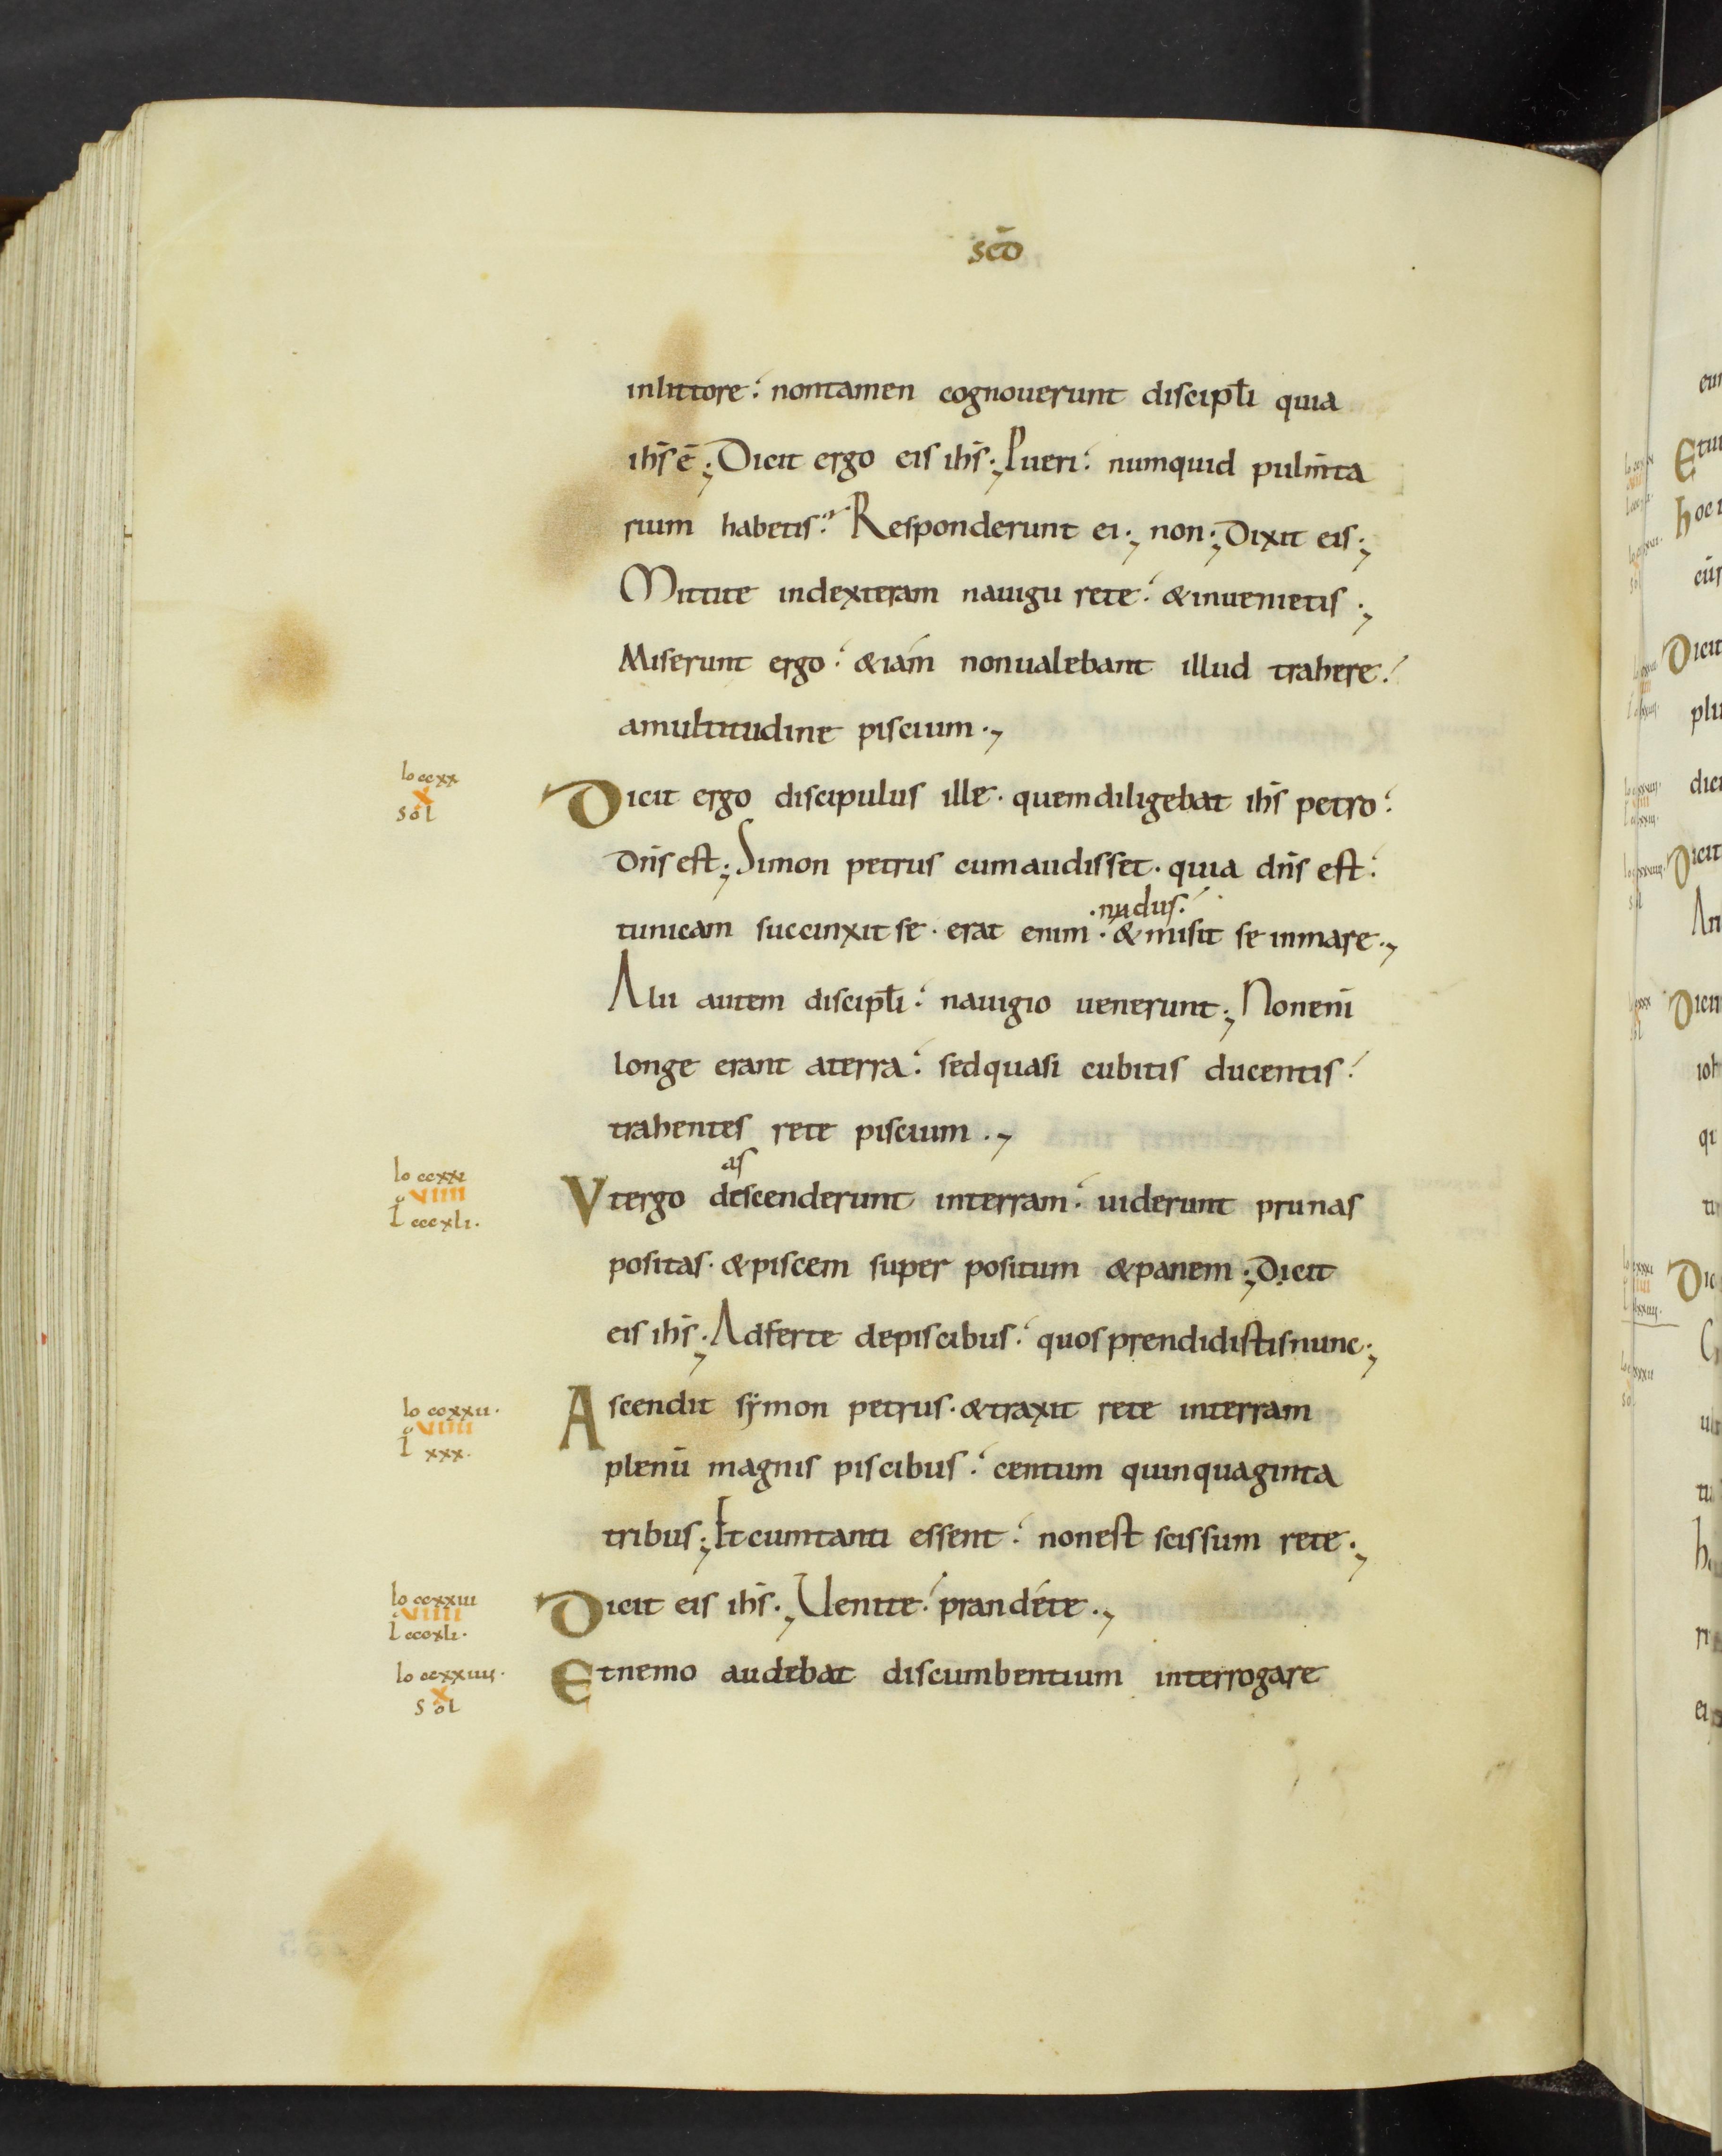 scō
inlittore: nontamen cognouerunt discipłi quia
ihs̄ ē; Dicit ergo eis ihs̄; Pueri: numquid pulm̄ta
rium habetis? Responderunt ei; non; Dixit eis;
Mittite indexteram nauigii rete: & inuenietis;
Miserunt ergo: & iám nonualebant illud trahere:
amultitudine piscium;
lo ccxx
x
sol
Dicit ergo discipulus ille· quemdiligebat ihs̄ petro:
Dn̄s est; Simon petrus cumaudisset· quia dn̄s est:
·nudus:
tunicam succinxit se· erat enim· & misit se inmare;
Alii autem discipłi: nauigio uenerunt; Nonenī
longe erant aterra: sedquasi cubitis ducentis:
trahentes rete piscium;
as
lo ccxxi
viiii
l cccxli·
Vtergo descenderunt interram: uiderunt prunas
positas· & piscem super positum & panem; Dicit
eis ihs̄; Adferte depiscibus: quos prendidistisnunc;
lo ccxxii·
viiii
l xxx·
Ascendit sẏmon petrus· & traxit rete interram
plenū magnis piscibus: centum quinquaginta
tribus; Etcumtanti essent: nonest scissum rete;
lo ccxxiii
viiii
l cccxli·
Dicit eis ihs̄; Uenite: prandéte;
lo ccxxiiii·
x
sol
Etnemo audebat discumbentium interrogare